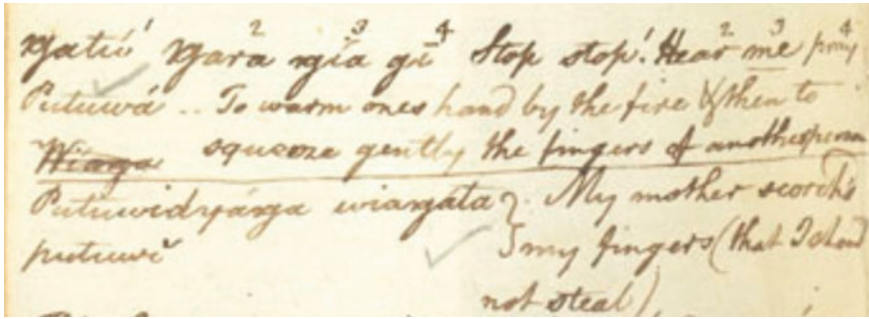 Ŋatú! Ŋára ŋía gī Stop stop! Hear me pray
Putuwá .. To warm ones hand by the fire & then to
Wiaga squeeze gently the fingers of another person
Putuwidyáŋa wiaŋáta }. My mother scorchs
putuwī my fingers (that I shoud
not steal)